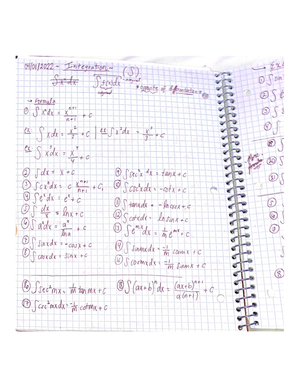 04/01/2022 - Integration - (∫)
∫x^n dx ∫f(x)dx
* opposite of differentiation *
→ Formula
① ∫x^n dx = x^(n+1)/(n+1) + c
ex. ∫x dx = x²/2 + c | ex ∫x² dx = x³/3 + c
ex. ∫x³ dx = x⁴/4 + c
② ∫dx = x + c
③ ∫c x^n dx = c x^(n+1)/(n+1) + c
④ ∫e^x dx = e^x + c
⑤ ∫dx/x = ln x + c
⑥ ∫a^x dx = a^x/ln a + c
⑦ ∫sin x dx = -cos x + c
⑧ ∫cos x dx = sin x + c
⑨ ∫sec² x dx = tan x + c
⑩ ∫csc² x dx = -cot x + c
⑪ ∫tan x dx = -ln cos x + c
⑫ ∫cot x dx = ln sin x + c
⑬ ∫e^mx dx = 1/m e^mx + c
⑭ ∫sin mx dx = -1/m cos mx + c
⑮ ∫cos mx dx = -1/m sin mx + c
⑯ ∫sec² mx = 1/m tan mx + c
⑰ ∫csc² mx dx = -1/m cot mx + c
⑱ ∫(ax+b)^n dx = (ax+b)^(n+1)/a(n+1) + c